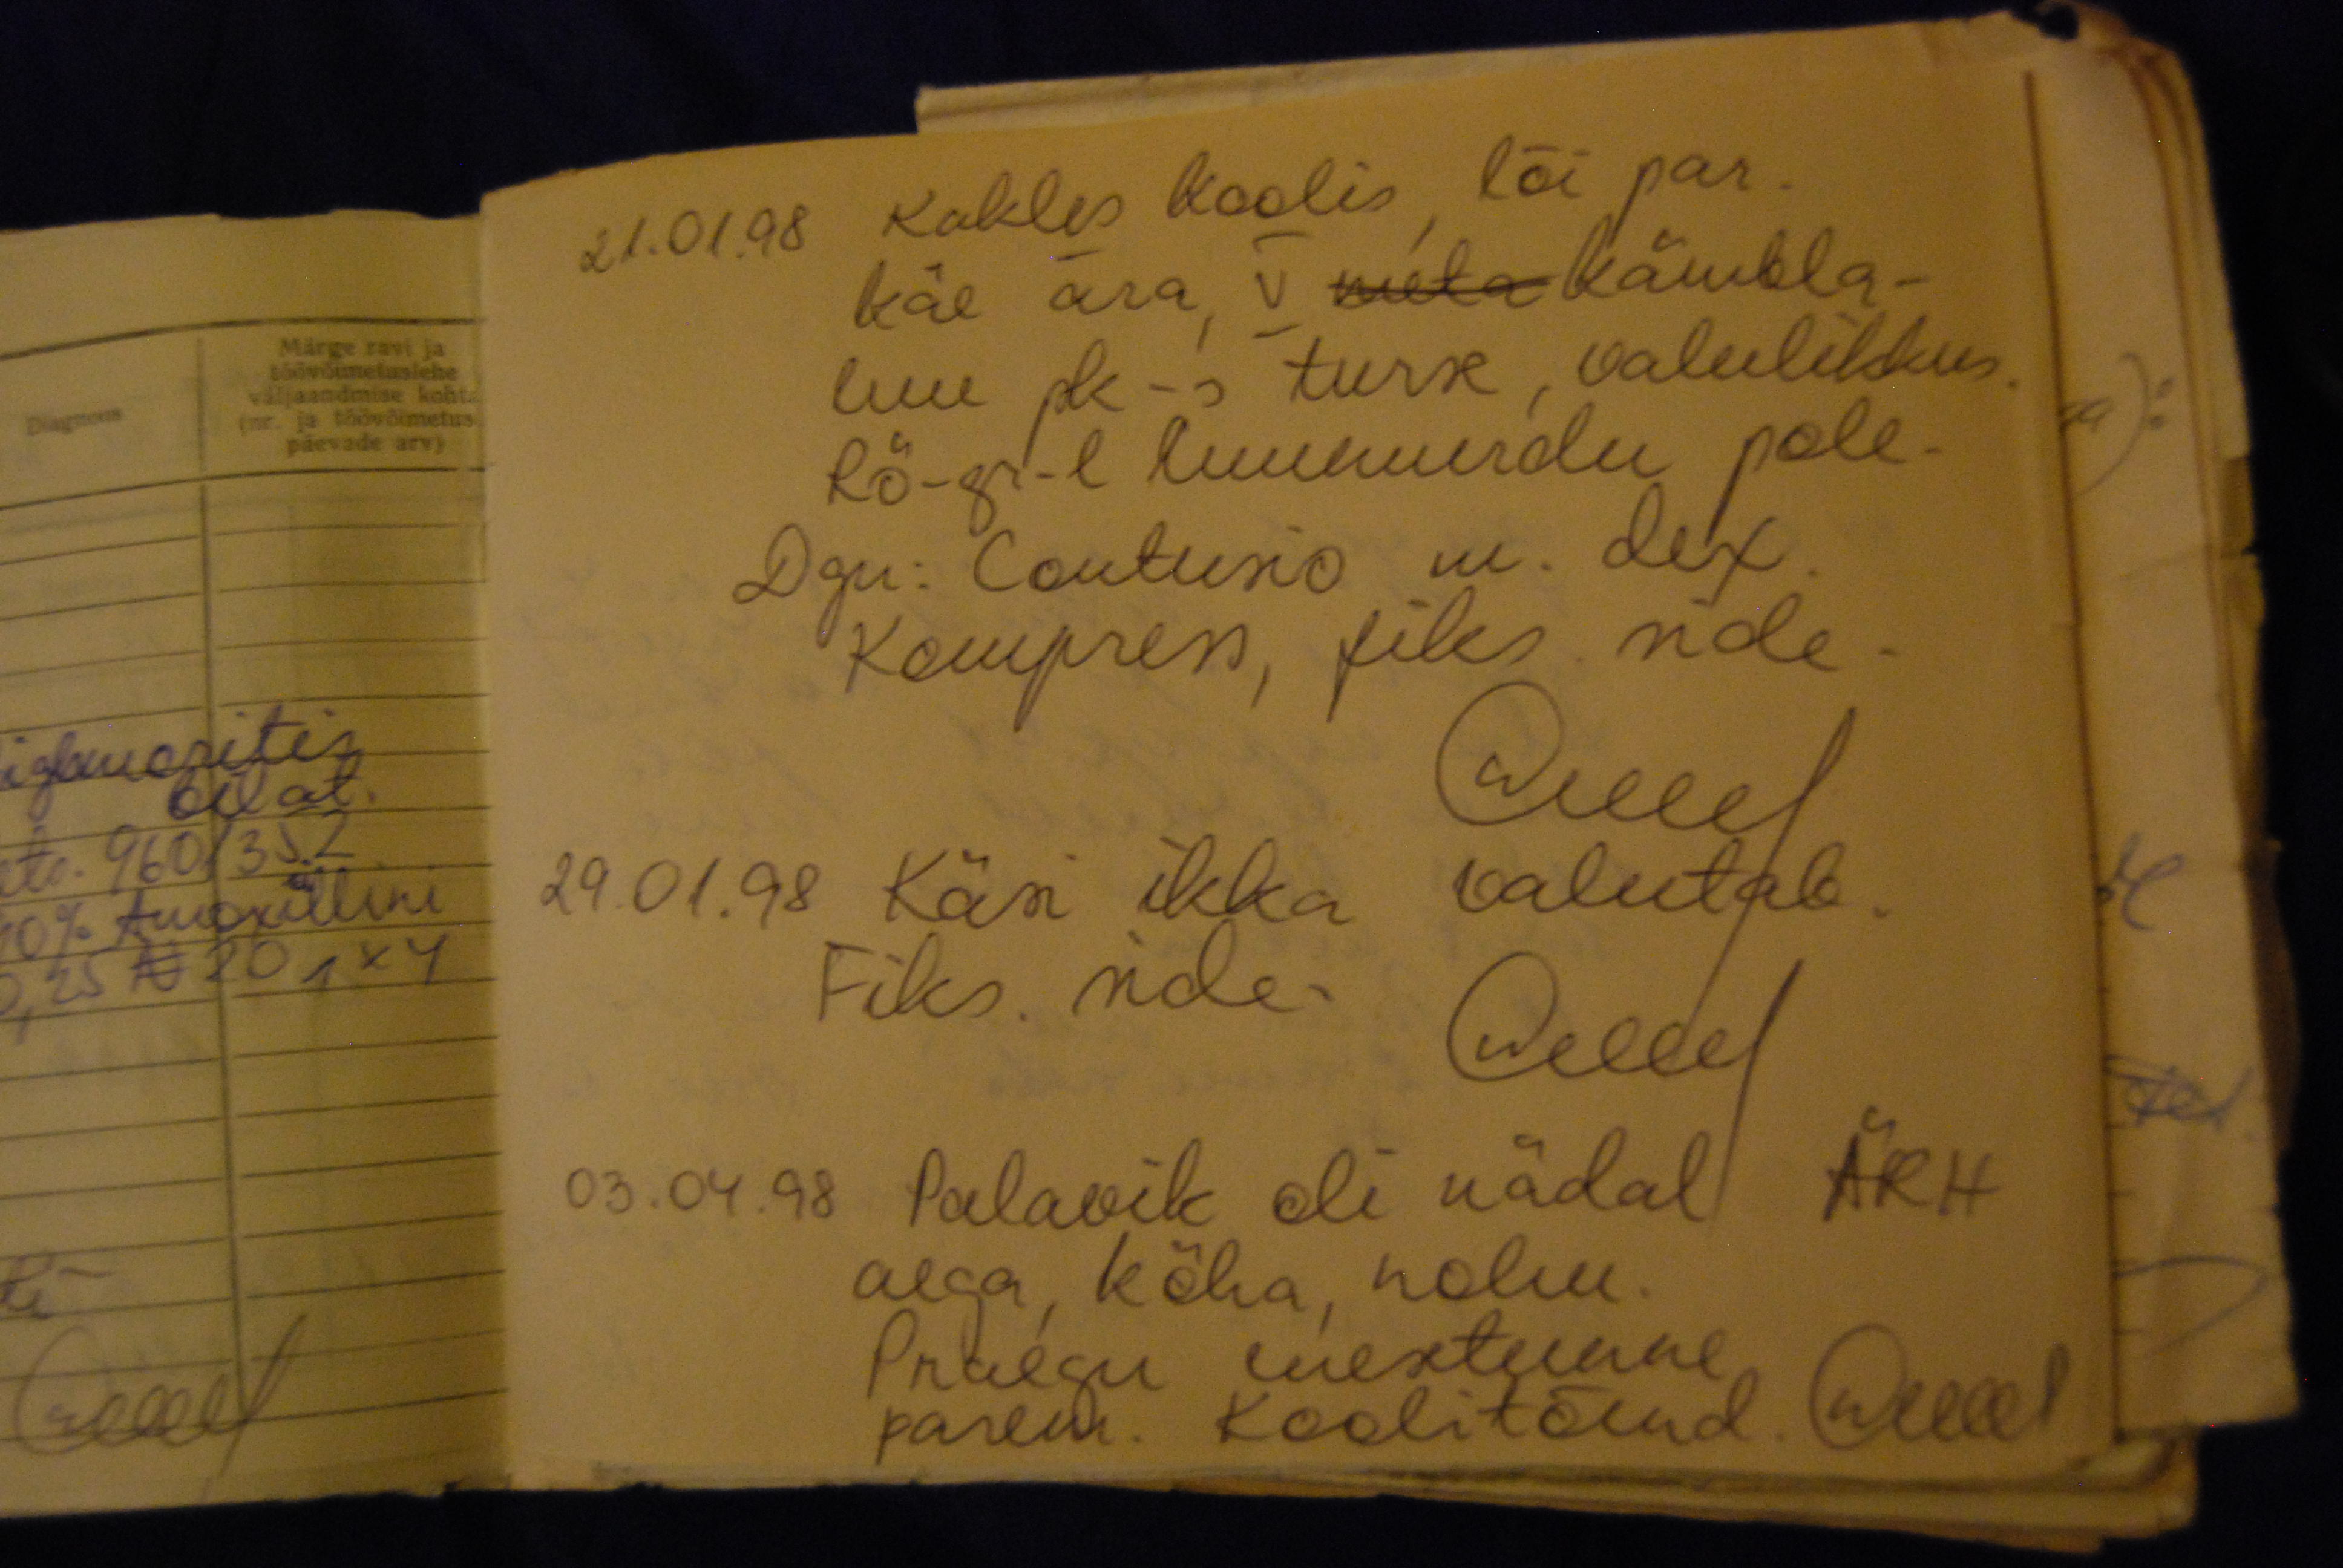 Diagnoos
Märge ravi ja
töövõimetuslehe
väljaandmise kohta
(nr. ja töövõimetus-
päevade arv)
ighmoritis
bilat.
960/352
10% Amoxillini
0,25 N 20 1 x 4
21.01.98 Kakles koolis, lõi par.
käe ära, V meta kämbla-
luu pk-s turse, valulikkus.
Rö-gr-l luumurdu pole.
Dgn: Contusio m. dex.
Kompress, fiks. side.
29.01.98 Käsi ikka valutab.
Fiks. side.
03.04.98 Palavik oli nädal ÄRH
aega, köha, nohu.
Praegu enesetunne
parem. Koolitõend.